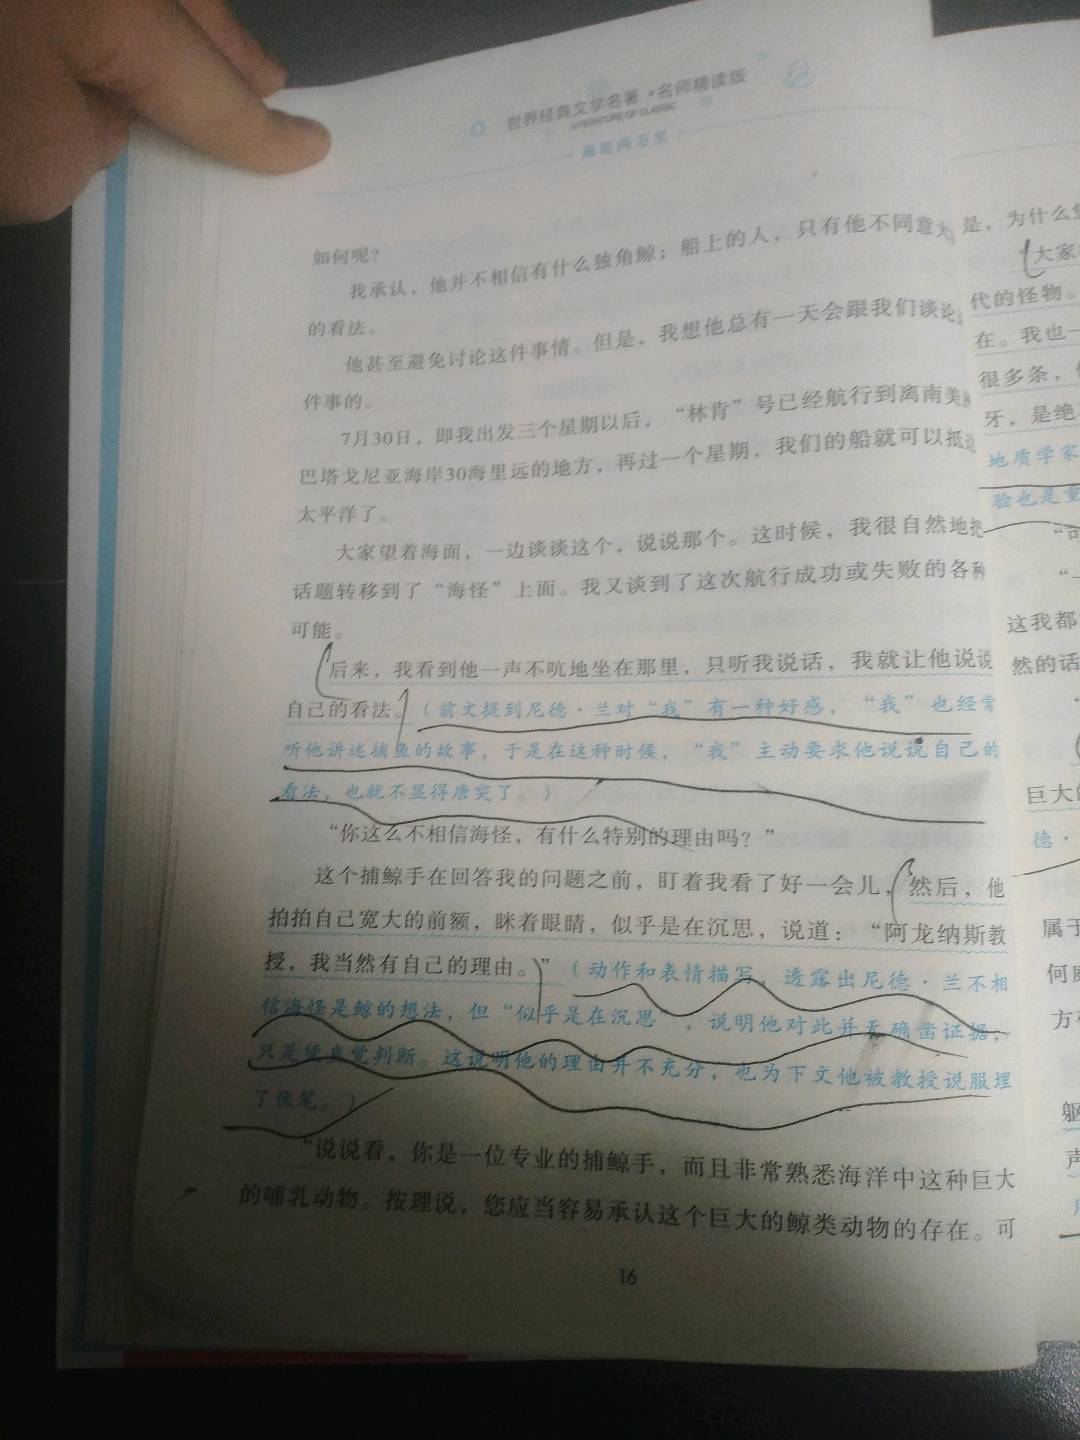 世界经典文学名著·名师精读版
LITERATURE OF CLASSIC
海底两万里
如何呢?
我承认，他并不相信有什么独角鲸；船上的人，只有他不同意大
的看法。
他甚至避免讨论这件事情。但是，我想他总有一天会跟我们谈论
件事的。
7月30日，即我出发三个星期以后，“林肯”号已经航行到离南美
巴塔戈尼亚海岸30海里远的地方，再过一个星期，我们的船就可以抵达
太平洋了。
大家望着海面，一边谈谈这个，说说那个。这时候，我很自然地把
话题转移到了“海怪”上面。我又谈到了这次航行成功或失败的各种
可能。
后来，我看到他一声不吭地坐在那里，只听我说话，我就让他说说
自己的看法。（前文提到尼德·兰对“我”有一种好感，“我”也经常
听他讲述捕鱼的故事，于是在这种时候，“我”主动要求他说说自己的
看法，也就不显得唐突了。）
“你这么不相信海怪，有什么特别的理由吗？”
这个捕鲸手在回答我的问题之前，盯着我看了好一会儿，然后，他
拍拍自己宽大的前额，眯着眼睛，似乎是在沉思，说道：“阿龙纳斯教
授，我当然有自己的理由。”（动作和表情描写，透露出尼德·兰不相
信海怪是鲸的想法，但“似乎是在沉思”，说明他对此并无确凿证据，
只是凭直觉判断。这说明他的理由并不充分，也为下文他被教授说服埋
了伏笔。）
“说说看，你是一位专业的捕鲸手，而且非常熟悉海洋中这种巨大
的哺乳动物。按理说，您应当容易承认这个巨大的鲸类动物的存在。可
16
是，为什么
大家
代的怪物。
在。我也一
很多条，
牙，是绝
地质学家
验也是重
“可
“一
这我都
然的话
巨大的
德·
属于
何
方
声